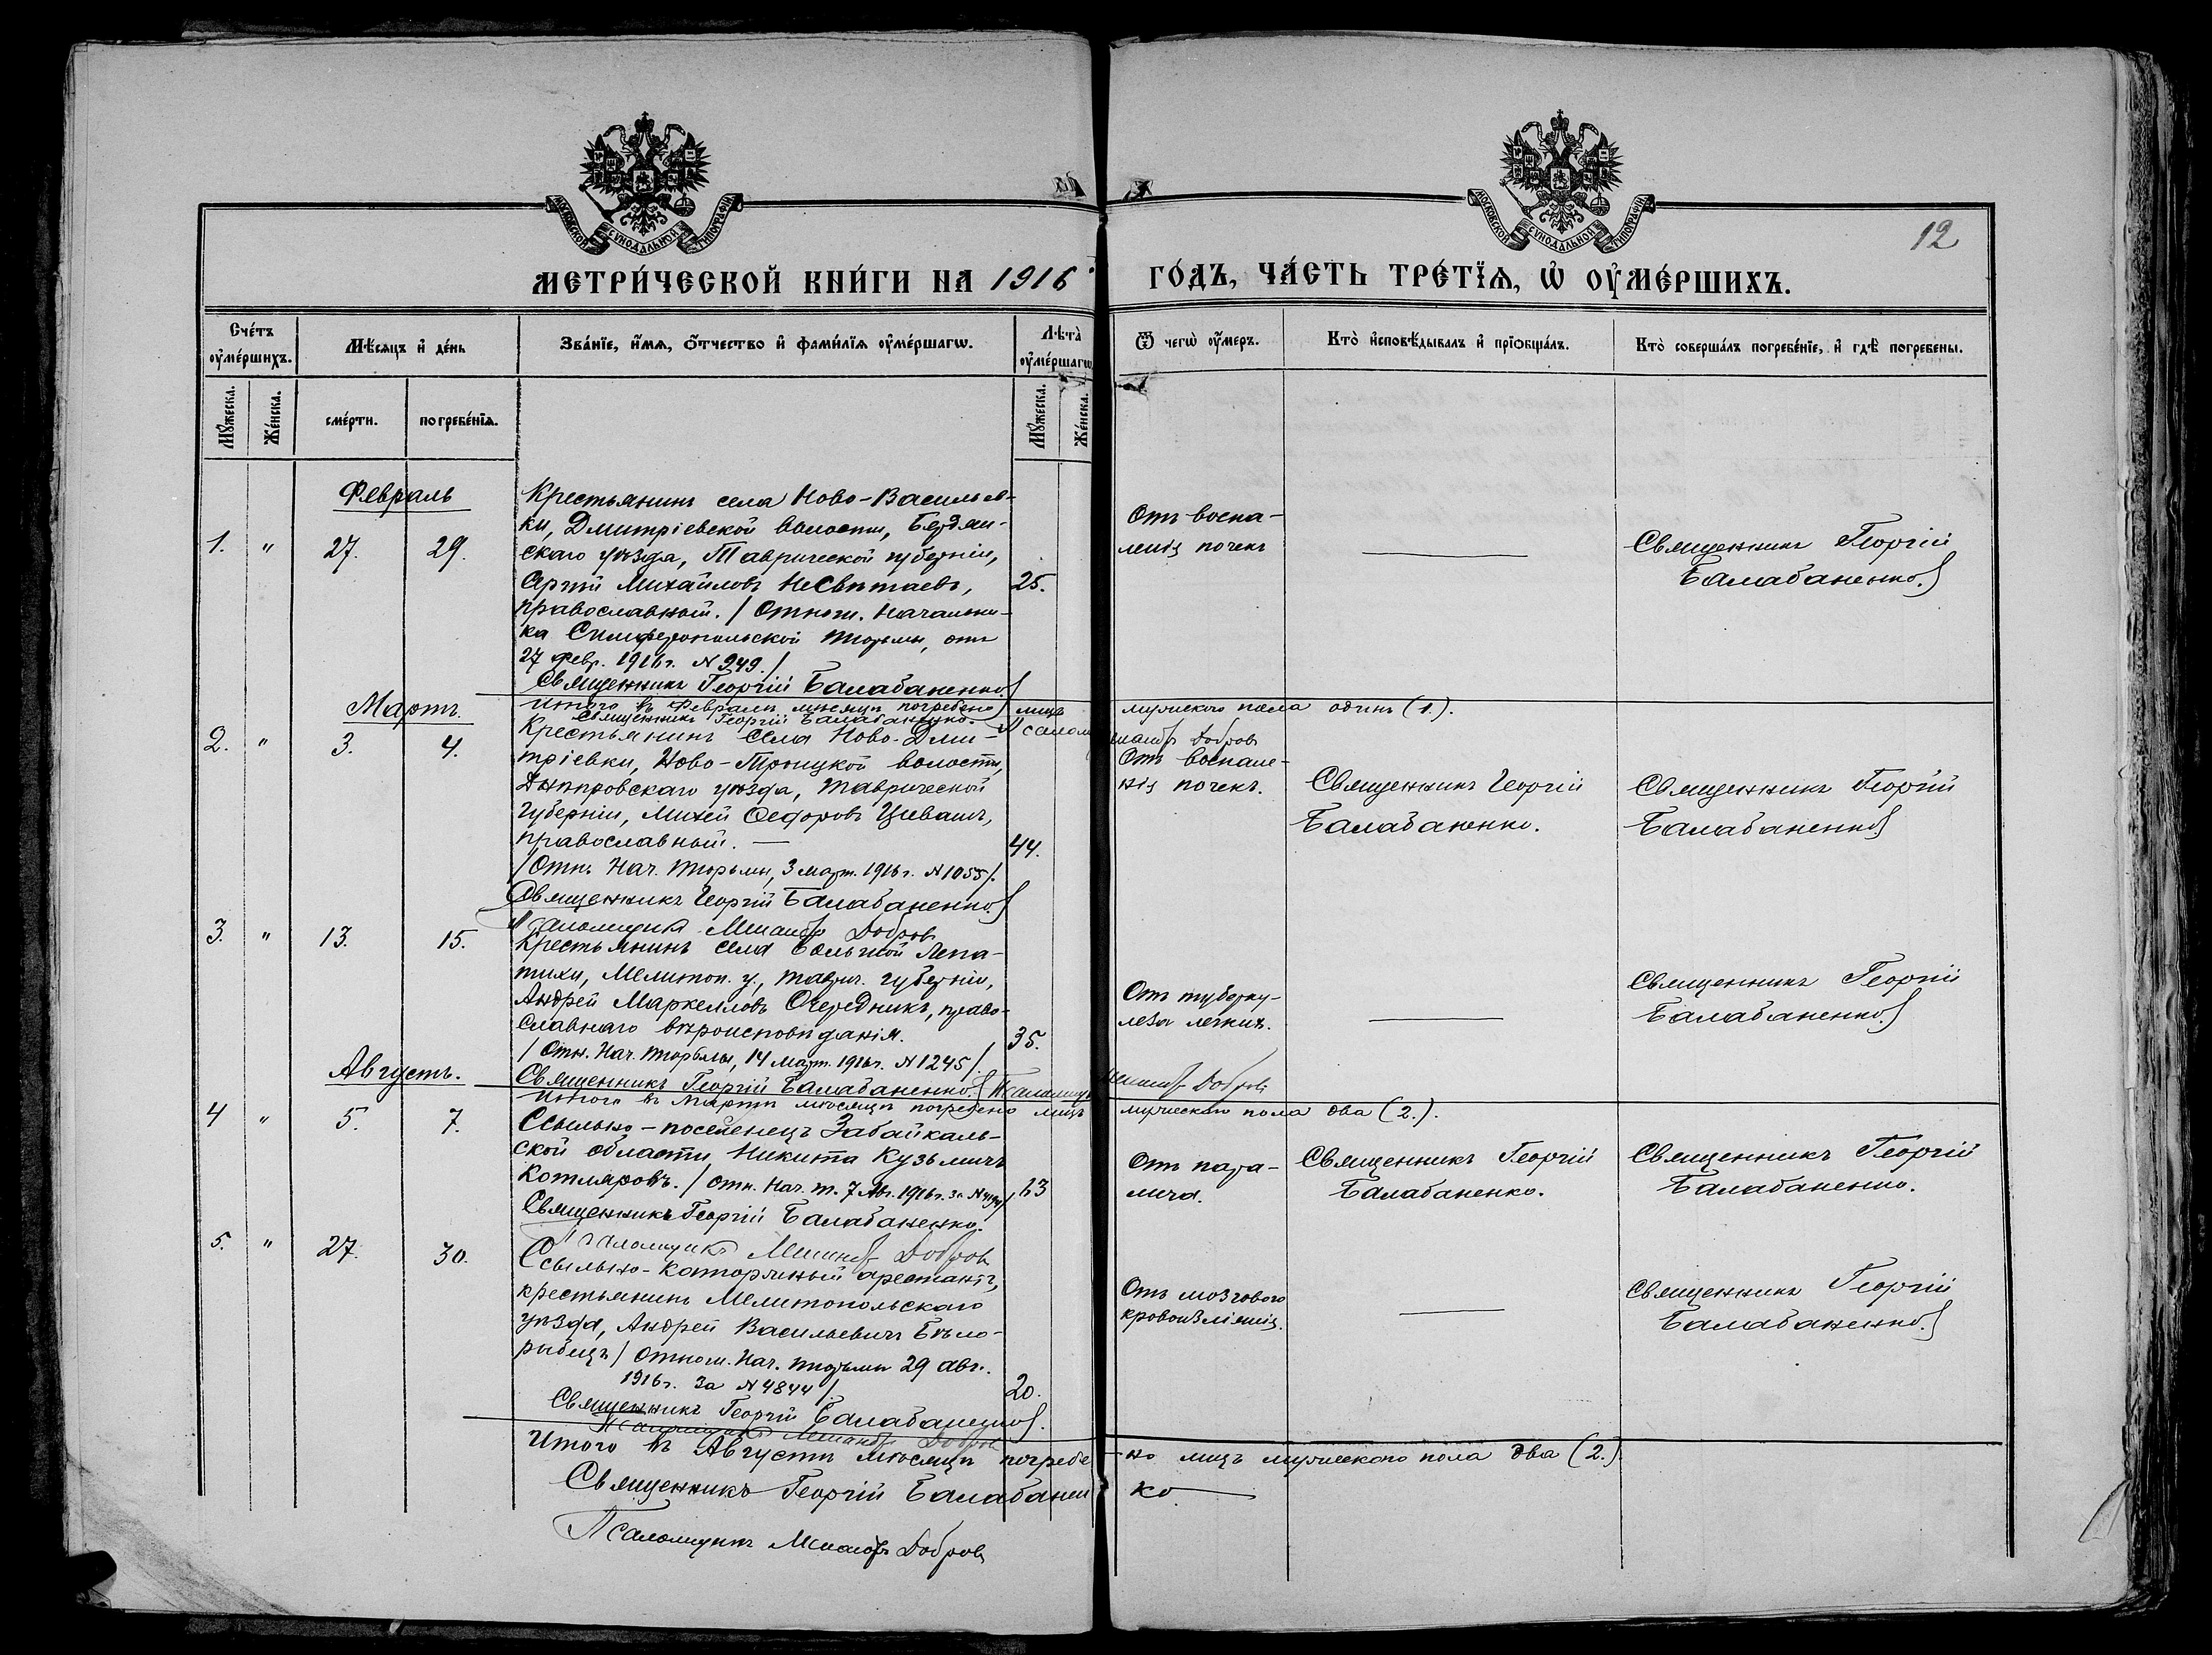 МОСКОВСКОЙ СѴНОДАЛЬНОЙ ТИПОГРАФІИ
МОСКОВСКОЙ СѴНОДАЛЬНОЙ ТИПОГРАФІИ
12
МЕТРИ́ЧЕСКОЙ КНИ́ГИ НА 1916 ГО́ДЪ, ЧА́СТЬ ТРЕ́ТЇѦ, Ѡ҆ ОУ҆МЕ́РШИХЪ.
Сче́тъ оу҆ме́ршихъ.
Мѣ́сѧцъ и҆ де́нь
Зва́нїе, и҆́мѧ, ѻ҆́тчество и҆ фами́лїѧ оу҆ме́ршагѡ.
Лѣ́та̀ оу҆ме́ршагѡ
Ѿ чегѡ̀ оу҆́меръ.
Кто̀ и҆сповѣ́дывалъ и҆ прїѻбща́лъ.
Кто̀ соверша́лъ погребе́нїе, и҆ гдѣ̀ погребены.
Мꙋ́жеска.
Же́нска.
сме́рти.
погребе́нїѧ.
Мꙋ́жеска.
Же́нска.
Февраль
1. " 27. 29.
Крестьянинъ села Ново-Васильев-
ки, Дмитріевской волости, Бердян-
скаго уѣзда, Таврической губерніи,
Михайловъ Несвѣтаевъ, 25.
православный. / Отнош. Начальни-
ка Симферопольской тюрьмы, отъ
27 февр. 1916 г. N 949. /
Священникъ Георгій Балабаненко.
Отъ воспа-
ленія почекъ
Священникъ Георгій
Балабаненко.
Итого въ Февралѣ мѣсяцѣ погребено лицъ мужескаго пола одинъ (1.).
Священникъ Георгій Балабаненко. Псалом Добровъ
Мартъ.
2. " 3. 4.
Крестьянинъ села Ново-Дми-
тріевки, Ново-Троицкой волости,
Днѣпровскаго уѣзда, Таврической
губерніи, Михей Ѳедоровъ Цивашъ,
православный. — 44.
/ Отн. Нач. тюрьмы, 3 март. 1916 г. N 1055 /.
Священникъ Георгій Балабаненко.
Псаломщикъ Добровъ
Отъ воспале-
нія почекъ.
Священникъ Георгій
Балабаненко.
Священникъ Георгій
Балабаненко
3. " 13. 15.
Крестьянинъ села Большой Лепа-
тихи, Мелитоп. у., таврич. губерніи,
Андрей Маркелловъ Очередникъ, право-
славнаго вѣроисповѣданія. 35.
/ Отн. Нач. тюрьмы, 14 март. 1916 г. N 1245 /.
Священникъ Георгій Балабаненко. Псаломщ Добровъ
Отъ туберку-
леза легкихъ.
Священникъ Георгій
Балабаненко.
Итого въ Мартѣ мѣсяцѣ погребено лицъ мужескаго пола два (2.).
Августъ.
4 " 5. 7.
Ссыльно-поселенецъ Забайкаль-
ской области Никита Кузьмичъ
Котляровъ. / Отн. Нач. т. 7 Авг. 1916 г. за N / 63
Священникъ Георгій Балабаненко.
Псаломщикъ Добровъ
Отъ пара-
лича.
Священникъ Георгій
Балабаненко.
Священникъ Георгій
Балабаненко.
5. " 27. 30.
Ссыльно-каторжный арестантъ,
крестьянинъ Мелитопольскаго
уѣзда, Андрей Васильевичъ Бѣло-
рыбецъ / Отнош. Нач. тюрьмы 29 авг.
1916 г. за N 4844 /. 20.
Священникъ Георгій Балабаненко.
Псаломщикъ Добровъ
Отъ мозгового
кровоизліянія.
Священникъ Георгій
Балабаненко.
Итого въ Августѣ мѣсяцѣ погребено лицъ мужескаго пола два (2.)
Священникъ Георгій Балабаненко.
Псаломщикъ Добровъ